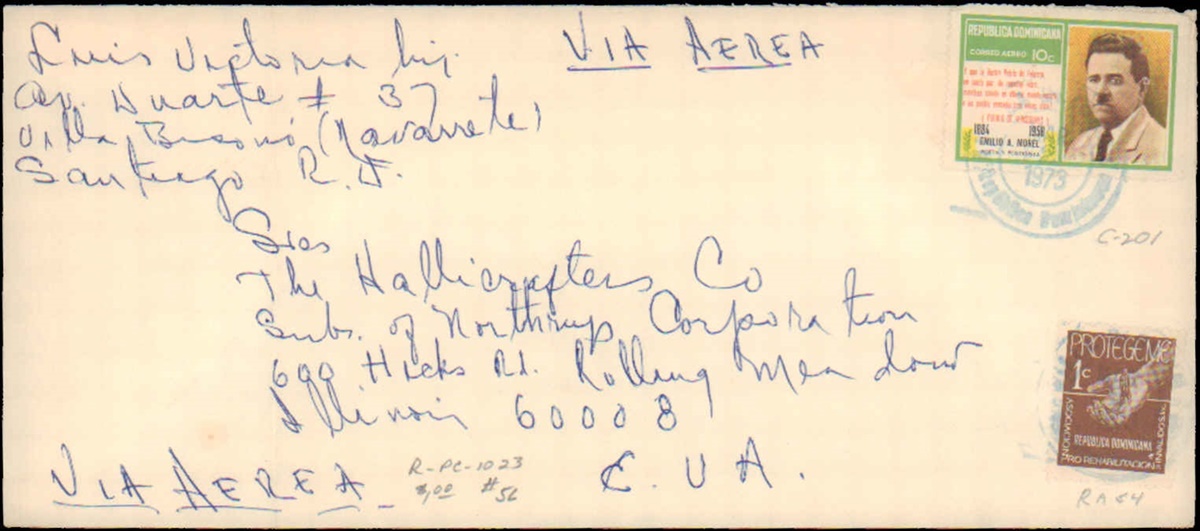 Luis Victoria hij.
Av. Duarte # 37
Villa Bisonó (Navarrete)
Santiago R. D.
VIA AEREA
REPUBLICA DOMINICANA
CORREO AEREO 10c
1884 1958
EMILIO A. MOREL
POETA Y PERIODISTA
1973
Republica Dominicana
C-201
Sres
The Hallicrafters Co
Subs. of Northrup Corporation
600 Hicks Rd. Rolling Meadow
Illinois 60008
E. U A.
VIA AEREA
R-PC-1023
$1,00 #56
PROTEGEME
1c
REPUBLICA DOMINICANA
ASOCIACION
PRO REHABILITACION
INVALIDOS INC.
RA 54